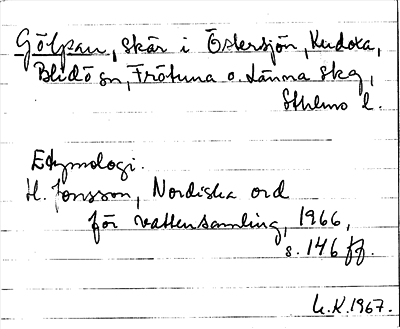 Gölpan, skär i Östersjön, Kudoxa,
Blidö sn, Frötuna o. Länna skg,
Sthlms l.
Etymologi.
H. Jonsson, Nordiska ord
för vattensamling, 1966,
s. 146 ff.
L.K. 1967.